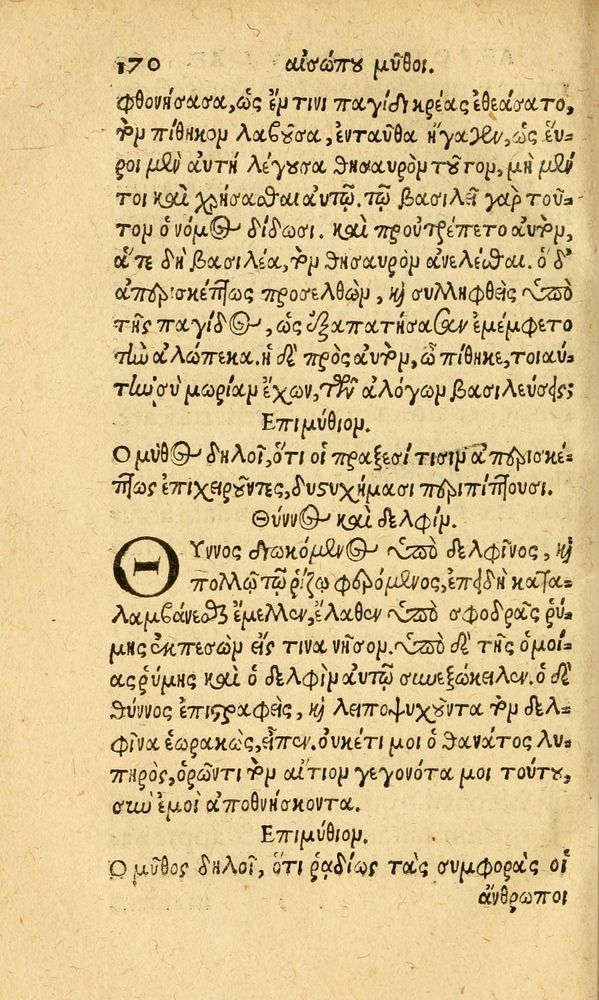 170 αἰσώπου μῦθοι.
φθονήσασα, ὡς ἔν τινι παγίδι κρέας ἐθεάσατο,
τὸν πίθηκον λαβοῦσα, ἐνταῦθα ἤγαγεν, ὡς εὕ-
ροι μὲν αὐτὴ λέγουσα θησαυρὸν τοῦτον, μὴ μέν
τοι καὶ χρήσασθαι αὐτῷ. τῷ βασιλεῖ γὰρ τοῦ-
τον ὁ νόμος δίδωσι. καὶ προὐτρέπετο αὐτὸν,
ἅτε δὴ βασιλέα, τὸν θησαυρὸν ἀνελέσθαι. ὁ δ'
ἀπερισκέπτως προσελθὼν, καὶ συλληφθεὶς ὑπὸ
τῆς παγίδος, ὡς ἐξαπατήσασαν ἐμέμφετο
τὴν ἀλώπεκα. ἡ δὲ πρὸς αὐτὸν, ὦ πίθηκε, τοιαύ-
την σὺ μωρίαν ἔχων, τῶν ἀλόγων βασιλεύσεις;
Επιμύθιον.
Ο μῦθος δηλοῖ, ὅτι οἱ πράξεσί τισιν ἀπερισκέ-
πτως ἐπιχειροῦντες, δυστυχήμασι περιπίπτουσι.
Θύννος καὶ δελφίν.
ΘΥννος διωκόμενος ὑπὸ δελφῖνος, καὶ
πολλῷ τῷ ῥίζῳ φερόμενος, ἐπειδὴ κατα-
λαμβάνεσθαι ἔμελλεν, ἔλαθεν ὑπὸ σφοδρᾶς ῥύ-
μης ἐκπεσὼν εἴς τινα νῆσον. ὑπὸ δὲ τῆς ὁμοί-
ας ῥύμης καὶ ὁ δελφὶν αὐτῷ συνεξώκειλεν. ὁ δὲ
θύννος ἐπιστραφεὶς, καὶ λειποψυχοῦντα τὸν δελ-
φῖνα ἑωρακὼς, εἶπεν. οὐκέτι μοι ὁ θάνατος λυ-
πηρὸς, ὁρῶντι τὸν αἴτιον γεγονότα μοι τούτου,
σὺν ἐμοὶ ἀποθνήσκοντα.
Επιμύθιον.
Ο μῦθος δηλοῖ, ὅτι ῥᾳδίως τὰς συμφορὰς οἱ
ἄνθρωποι